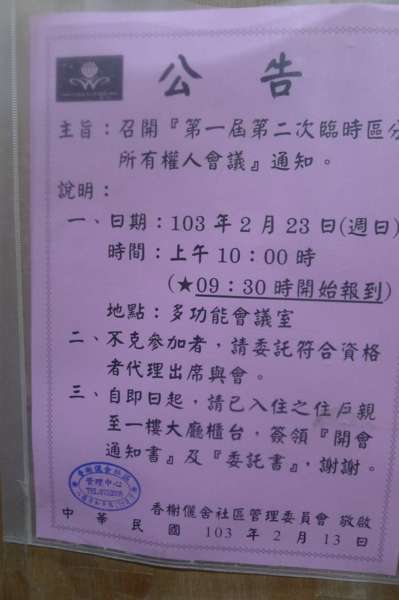 公告
主旨：召開『第一屆第二次臨時區分
所有權人會議』通知。
說明：
一、日期：103 年 2 月 23 日(週日)
時間：上午 10：00 時
(★09：30 時開始報到)
地點：多功能會議室
二、不克參加者，請委託符合資格
者代理出席與會。
三、自即日起，請已入住之住戶親
至一樓大廳櫃台，簽領『開會
通知書』及『委託書』，謝謝。
管理中心
香榭儷舍社區管理委員會 敬啟
中華民國 103 年 2 月 13 日